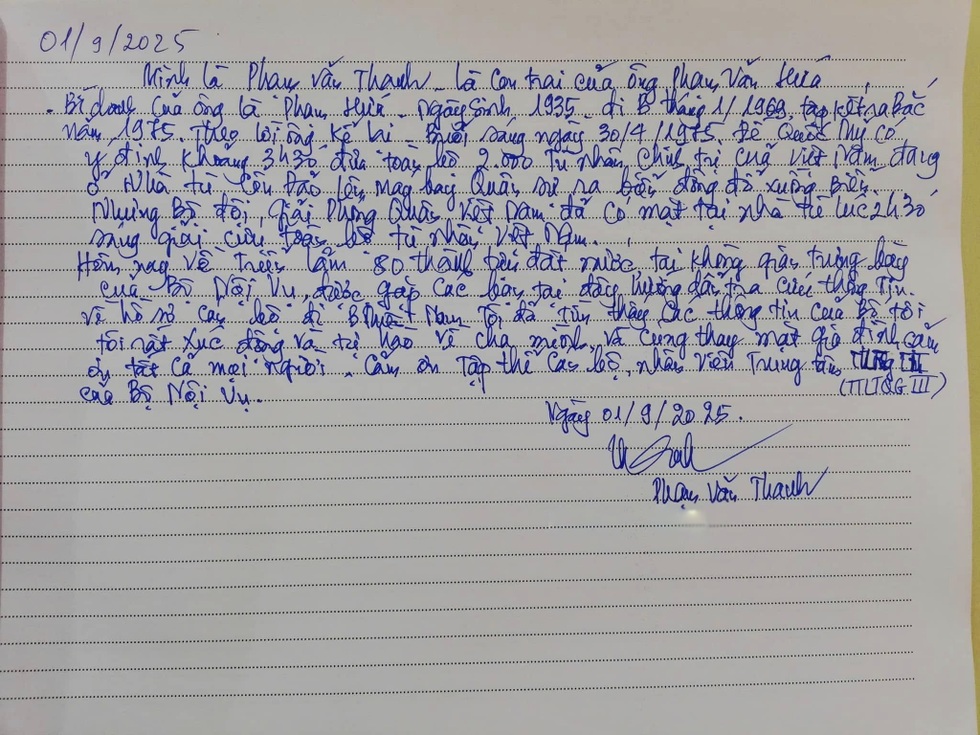 01/9/2025
Mình là Phạm Văn Thanh - là con trai của ông Phạm Văn Huê
- Bí danh của ông là Phạm Huê - Ngày sinh 1935 - đi B tháng 1/1969, tập kết ra Bắc
năm 1975. Theo lời ông kể lại - Buổi sáng ngày 30/4/1975 Đế Quốc Mỹ có
ý định khoảng 3h30 đưa toàn bộ 2.000 tù nhân chính trị của Việt Nam đang
ở Nhà tù Côn Đảo lên máy bay Quân sự ra biển đông đổ xuống biển.
Nhưng Bộ đội giải phóng Quân Việt Nam đã có mặt tại nhà tù lúc 2h30
sáng giải cứu toàn bộ tù nhân Việt Nam.
Hôm nay về triển lãm 80 thành tựu đất nước tại không gian trưng bày
của Bộ Nội Vụ, được gặp các bạn tại đây hướng dẫn tra cứu thông tin
về hồ sơ cán bộ đi B Nam tôi đã tìm thấy các thông tin của Bố tôi
tôi rất xúc động và tự hào về cha mình, và cũng thay mặt gia đình cảm
ơn tất cả mọi người. Cảm ơn Tập thể cán bộ, nhân viên Trung tâm
(TTLTQG III)
của Bộ Nội Vụ.
Ngày 01/9/2025.
Phạm Văn Thanh